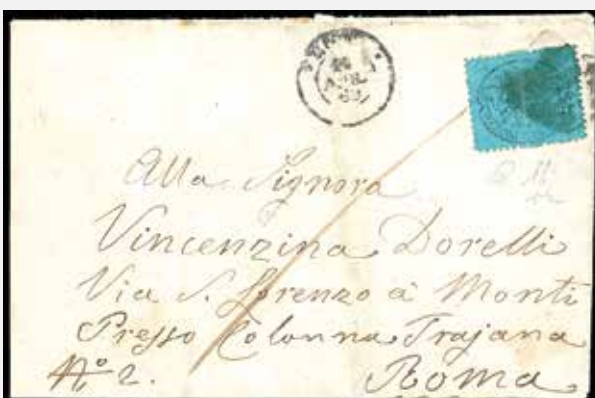 Alla Signora
Vincenzina Dorelli
Via S. Lorenzo a' Monti
Presso Colonna Trajana
Nº 2. Roma